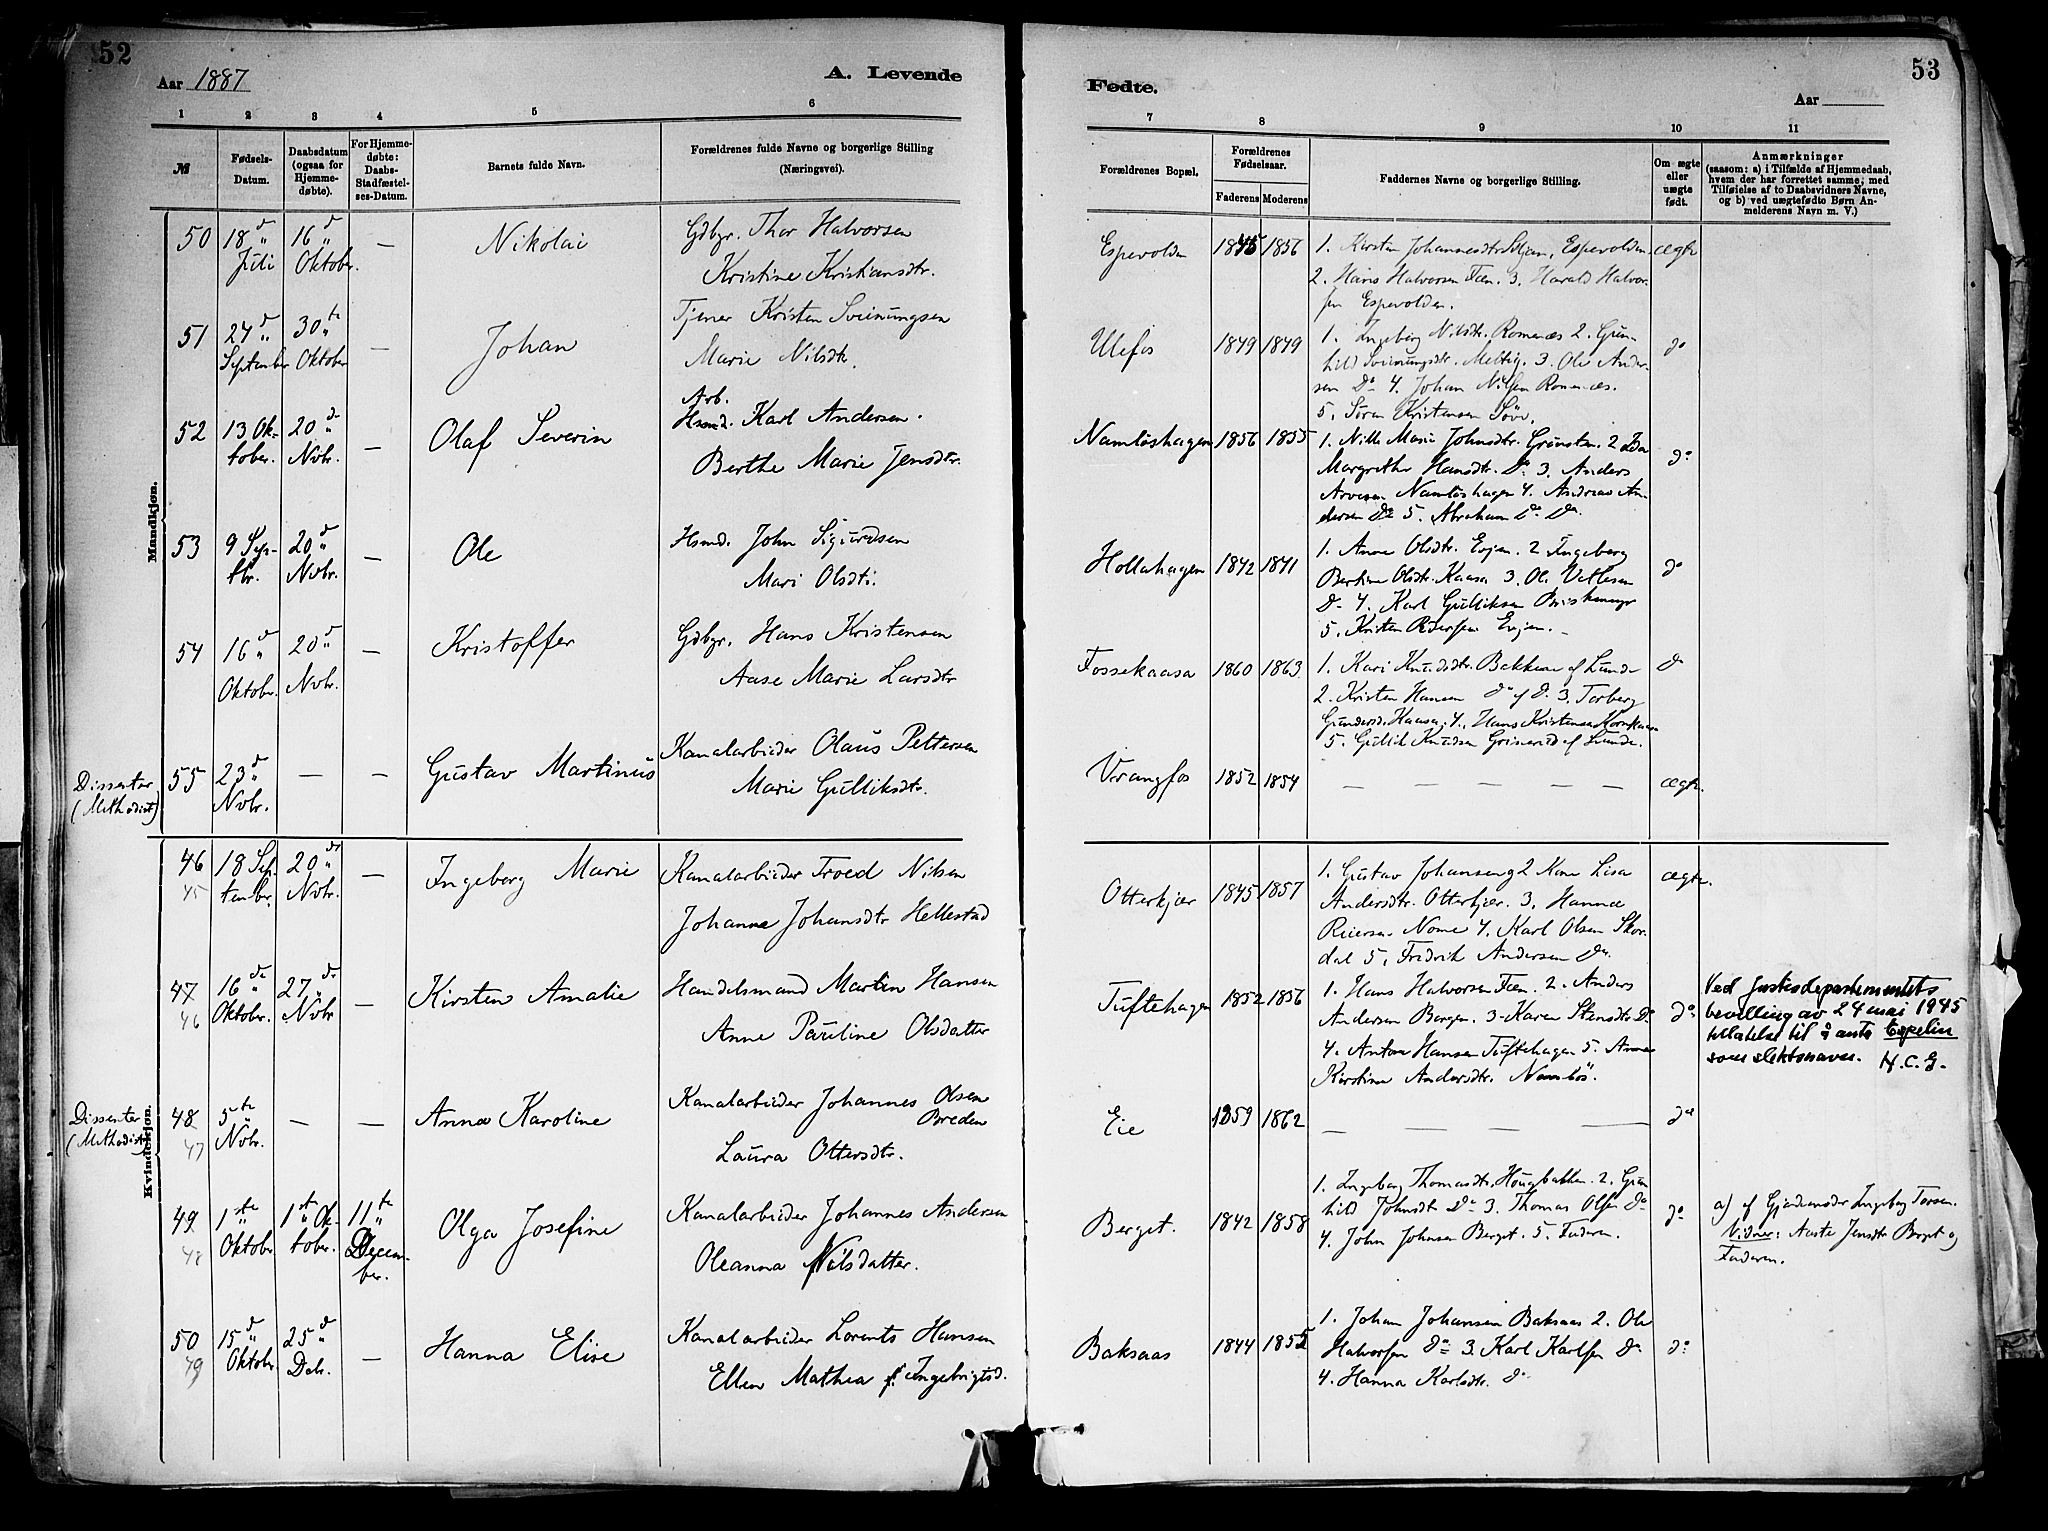 52
Aar 1887
A. Levende
1 2 3 4 5 6
№
Fødsels-Datum.
Daabsdatum (ogsaa for Hjemmedøbte).
For Hjemmedøbte: Daabs-Stadfæstelses-Datum.
Barnets fulde Navn.
Forældrenes fulde Navne og borgerlige Stilling (Næringsvei).
Mandkjøn.
50 18d Juli 16d Oktober. — Nikolai Gdbgr. Thor Halvorsen
Kristine Kristiansdtr.
51 24d September 30te Oktober — Johan Tjener Kristen Sveinungsen
Marie Nilsdtr.
52 13 Oktober. 20de Nvbr. — Olaf Severin Arb. Hsmd. Karl Andersen.
Berthe Marie Jensdtr.
53 9 Septbr. 20d Nvbr. — Ole Hsmd. John Sigurdsen
Mari Olsdtr.
54 16d Oktobr. 20d Nvbr. — Kristoffer Gdbgr. Hans Kristensen
Aase Marie Larsdtr
Dissenter (Methodist) 55 23d Nvbr. — — Gustav Martinus Kanalarbeider Olaus Pettersen
Marie Gulliksdtr.
Kvindekjøn.
46 45 18 September. 20de Nvbr. — Ingeborg Marie Kanalarbeider Troed Nilsen
Johanne Johansdtr Hellestad
47 46 16de Oktober. 27de Nvbr — Kirsten Amalie Handelsmand Martin Hansen
Anne Pauline Olsdatter
Dissenter (Methodist) 48 47 5te Nvbr. — — Anna Karoline Kanalarbeider Johannes Olsen Breden
Laura Ottersdtr.
49 48 1ste Oktobr 1ste Oktober. 11te December. Olga Josefine Kanalarbeider Johannes Andersen
Oleanna Nilsdatter.
50 49 15d Oktobr 25d Dcbr. — Hanna Elise Kanalarbeider Lorents Hansen
Ellen Mathea f. Ingebrigtsd.
53
Fødte.
Aar
7 8 9 10 11
Forældrenes Bopæl,
Forældrenes Fødselsaar.
Faderens Moderens
Faddernes Navne og borgerlige Stilling.
Om ægte eller uægte født.
Anmærkninger
(saasom: a) i Tilfælde af Hjemmedaab,
hvem der har forrettet samme; med
Tilføielse af to Daabsvidners Navne,
og b) ved uægtefødte Børn Anmelderens Navn m. V.)
Espevolden 1845 1856 1. Kirsten Johannesdtr. , Espevolden. ægte
2. Hans Halvorsen Fæn. 3. Harald Halvorsen Espevolden.
Ulefos 1849 1849 1. Ingeborg Nilsdtr. Romenæs 2. Gunhild Sveinungsdtr. Meltig. 3. Ole Andersen Do 4. Johan Nilsen Romenæs. do
5. Søren Kristensen Søve.
Namløshagen 1856 1855 1. Nille Marie Johnsdtr. 2
Margrethe Hansdtr. Do 3. Anders do
Arvesen Namløshagen 4. Andreas Andersen Do 5. Abraham Do Do.
Hollahagen 1842 1841 1. Anne Olsdtr. Evjen. 2 Ingeborg do
Bertine Olsdtr. Kaasa 3. Ole Vetlesen
Do 4. Karl Gulliksen
5. Kristen Evjen.
Fossekaasa 1860 1863. 1. Kari Knudsdtr. Bakken af Lunde do
2. Kristen Hansen do af do. 3. Torberg
Gundersd. Kaasa, 4. Hans Kristensen
5. Gullik Knudsen af Lunde.
Vrangfos 1852 1854 — — — — — ægte.
Otterkjær 1845 1857 1. Gustav Johansen og 2 Lisa ægte.
Andersdtr. Otterkjær. 3. Hanna
Reiersen Nome 4. Karl Olsen Skordal 5. Fredrik Andersen Do
Tuftehagen 1852 1856 1. Hans Halvorsen Fæn. 2. Anders
Andersen Bergen. 3. Karen Stensdtr Do do
4. Anton Hansen Tuftehagen 5. Anne
Kirstine Andersdtr. Namløs.
Ved Justisdepartementets
bevilling av 24 mai 1945
tillatelse til å anta Espelin
som slektsnavn. H.C.G.
Eie 1859 1862 — — — — do
Berget. 1842 1858 1. Ingeborg Thomasdtr. Haugbakken. 2. Gunhild Johnsdtr Do 3. Thomas Olsen Do do
4. John Johnsen Berget. 5. Faderen.
a) af Gjordemoder Ingeborg Torsen.
Vidner: Aaste Jensdtr Berget og
Faderen.
Baksaas 1844 1855 1. Johan Johansen Baksaas 2. Ole
Halvorsen Do 3. Karl Karlsen Do do
4. Hanna Karlsdtr. do